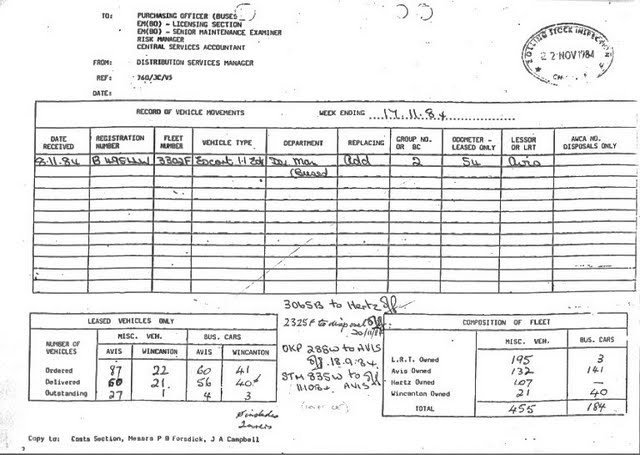 TO: PURCHASING OFFICER (BUSES
EM(BO) - LICENSING SECTION
EM(BO) - SENIOR MAINTENANCE EXAMINER
RISK MANAGER
CENTRAL SERVICES ACCOUNTANT
FROM: DISTRIBUTION SERVICES MANAGER
REF: 760/JC/V5
DATE:
ROLLING STOCK INSPECTOR
22 NOV 1984
RECORD OF VEHICLE MOVEMENTS WEEK ENDING 17.11.84
DATE RECEIVED REGISTRATION NUMBER FLEET NUMBER VEHICLE TYPE DEPARTMENT REPLACING GROUP NO. OR BC ODOMETER - LEASED ONLY LESSOR OR LRT AWCA NO. DISPOSALS ONLY
8.11.84 3302F Escort 1.1 Man Add 2 54 Avis
(Buses)
3065B to Hertz
2325F to disposal
20/11/84
OKP 288W to AVIS
18.9.84
STM 835W to
AVIS
LEASED VEHICLES ONLY
NUMBER OF VEHICLES MISC. VEH. BUS. CARS
AVIS WINCANTON AVIS WINCANTON
Ordered 87 22 60 41
Delivered 60 21 56 40
Outstanding 27 1 4 3
includes
COMPOSITION OF FLEET
MISC. VEH. BUS. CARS
L.R.T. Owned 195 3
Avis Owned 132 141
Hertz Owned 107 —
Wincanton Owned 21 40
TOTAL 455 184
Copy to: Costs Section, Messrs P B Forsdick, J A Campbell